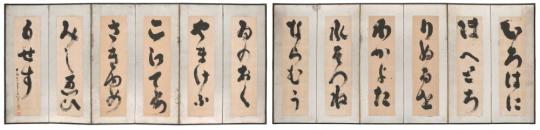 いろはに
ほへとち
りぬるを
わかよた
れそつね
ならむう
ゐのおく
やまけふ
こえてあ
さきゆめ
みしゑひ
もせす